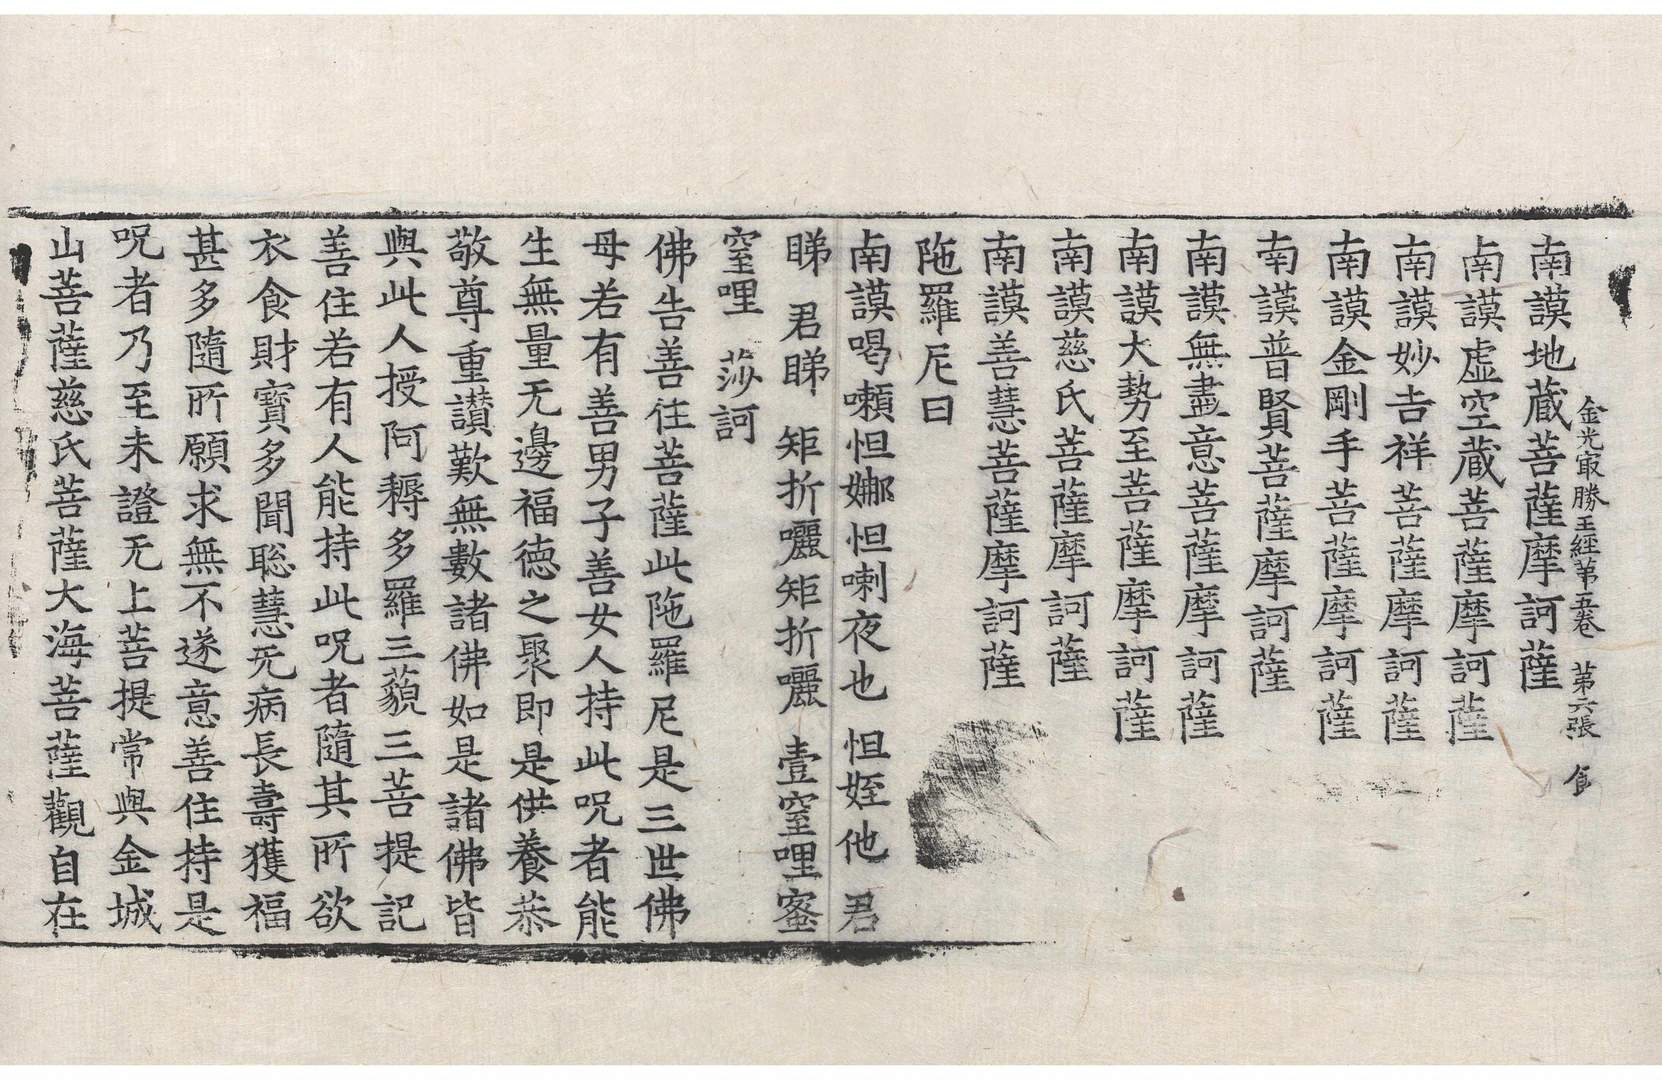 金光㝡勝王經苐五卷　第六張　食
南謨地蔵菩薩摩訶薩
南謨虛空蔵菩薩摩訶薩
南謨妙吉祥菩薩摩訶薩
南謨金剛手菩薩摩訶薩
南謨普賢菩薩摩訶薩
南謨無盡意菩薩摩訶薩
南謨大勢至菩薩摩訶薩
南謨慈氏菩薩摩訶薩
南謨善慧菩薩摩訶薩
陁羅尼曰
南謨喝囉怛娜怛喇夜也　怛姪他　君
睇　君睇　矩折囇矩折囇　壹窒哩蜜
窒哩　莎訶
佛告善住菩薩此陁羅尼是三世佛
母若有善男子善女人持此呪者能
生無量无邊福德之聚即是供養恭
敬尊重讃歎無數諸佛如是諸佛皆
與此人授阿耨多羅三藐三菩提記
善住若有人能持此呪者隨其所欲
衣食財寳多聞聡慧无病長壽獲福
甚多隨所願求無不遂意善住持是
呪者乃至未證无上菩提常與金城
山菩薩慈氏菩薩大海菩薩觀自在